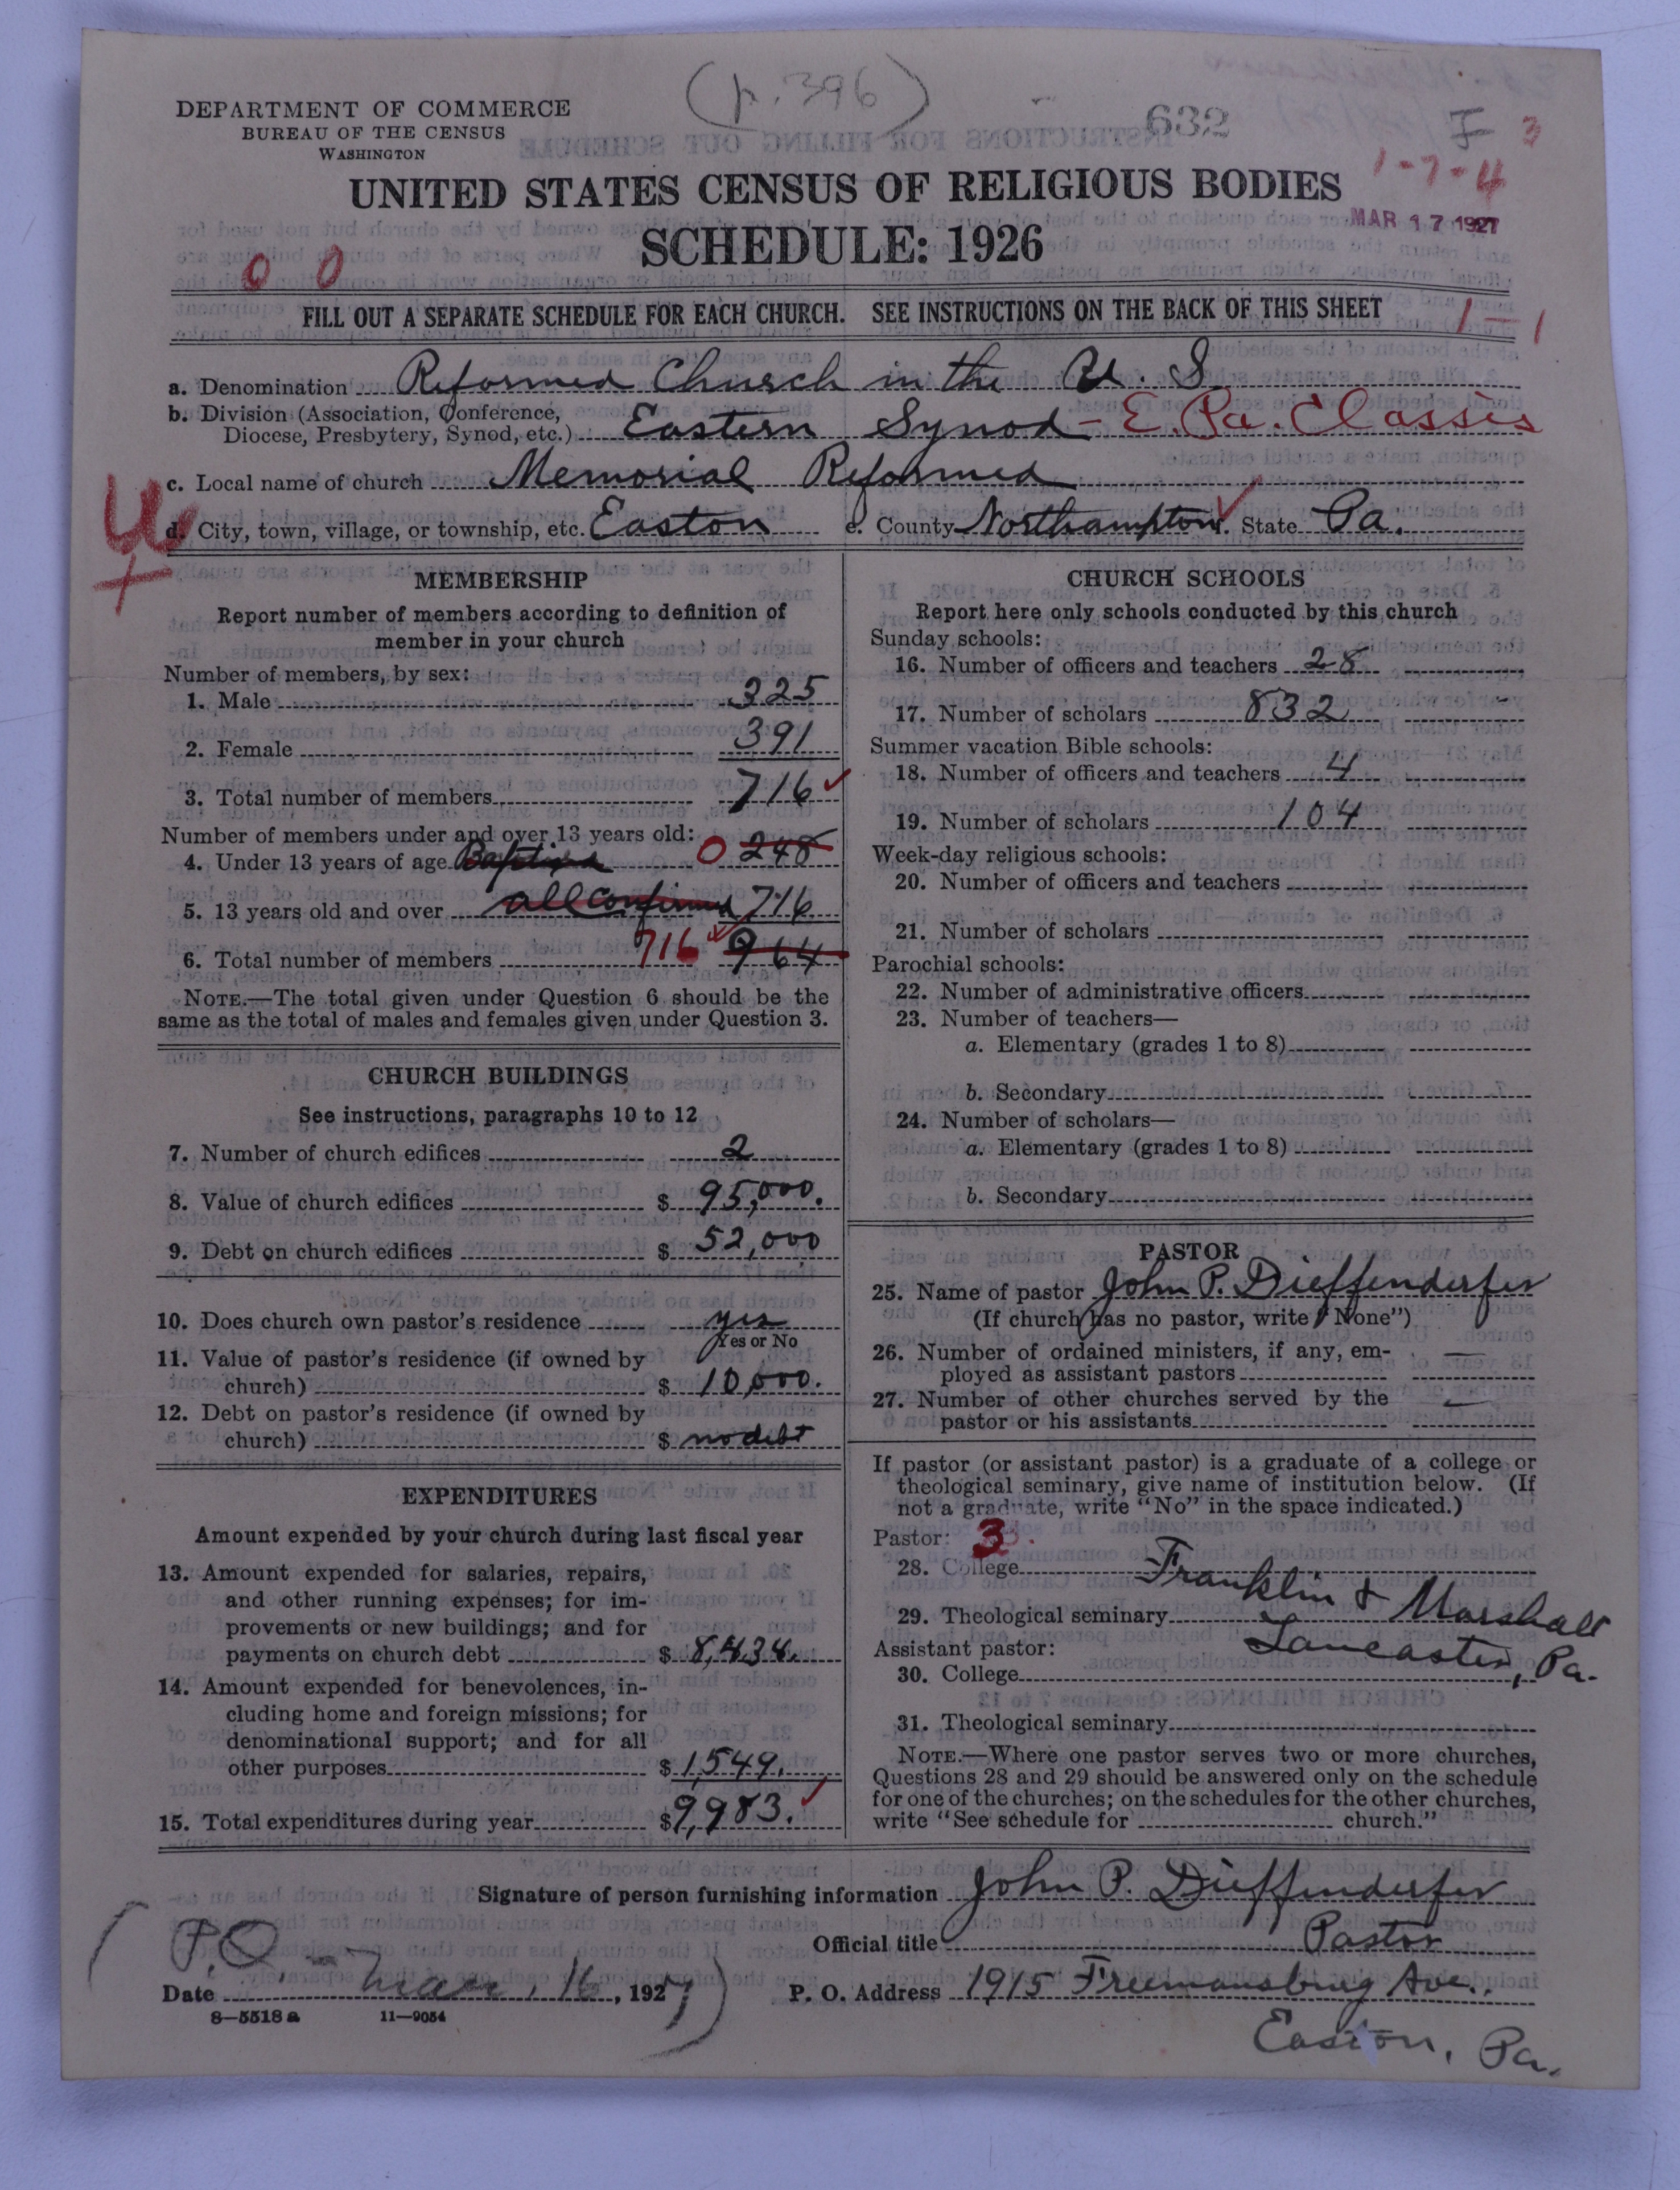 (p. 396)
DEPARTMENT OF COMMERCE
BUREAU OF THE CENSUS
WASHINGTON
632
F 3
1-7-4
UNITED STATES CENSUS OF RELIGIOUS BODIES
MAR 17 1927
SCHEDULE: 1926
0 0
FILL OUT A SEPARATE SCHEDULE FOR EACH CHURCH. SEE INSTRUCTIONS ON THE BACK OF THIS SHEET
1-1
a. Denomination Reformed Church in the U. S.
b. Division (Association, Conference,
Diocese, Presbytery, Synod, etc.) Eastern Synod - E. Pa. Classis
c. Local name of church Memorial Reformed
d. City, town, village, or township, etc. Easton e. County Northampton State Pa.
MEMBERSHIP
Report number of members according to definition of
member in your church
Number of members, by sex:
1. Male 325
2. Female 391
3. Total number of members 716
Number of members under and over 13 years old:
4. Under 13 years of age Baptized 0 248
5. 13 years old and over all confirmed 716
6. Total number of members 716 964
NOTE.—The total given under Question 6 should be the
same as the total of males and females given under Question 3.
CHURCH BUILDINGS
See instructions, paragraphs 10 to 12
7. Number of church edifices 2
8. Value of church edifices $ 95,000.
9. Debt on church edifices $ 52,000
10. Does church own pastor's residence yes
Yes or No
11. Value of pastor's residence (if owned by
church) $ 10,000.
12. Debt on pastor's residence (if owned by
church) $ no debt
EXPENDITURES
Amount expended by your church during last fiscal year
13. Amount expended for salaries, repairs,
and other running expenses; for im-
provements or new buildings; and for
payments on church debt $ 8,434.
14. Amount expended for benevolences, in-
cluding home and foreign missions; for
denominational support; and for all
other purposes $ 1,549.
15. Total expenditures during year $ 9,983.
CHURCH SCHOOLS
Report here only schools conducted by this church
Sunday schools:
16. Number of officers and teachers 28
17. Number of scholars 832
Summer vacation Bible schools:
18. Number of officers and teachers 4
19. Number of scholars 104
Week-day religious schools:
20. Number of officers and teachers
21. Number of scholars
Parochial schools:
22. Number of administrative officers
23. Number of teachers—
a. Elementary (grades 1 to 8)
b. Secondary
24. Number of scholars—
a. Elementary (grades 1 to 8)
b. Secondary
PASTOR
25. Name of pastor John P. Dieffenderfer
(If church has no pastor, write "None")
26. Number of ordained ministers, if any, em-
ployed as assistant pastors —
27. Number of other churches served by the
pastor or his assistants —
If pastor (or assistant pastor) is a graduate of a college or
theological seminary, give name of institution below. (If
not a graduate, write "No" in the space indicated.)
Pastor: 3
28. College Franklin & Marshall
29. Theological seminary Lancaster, Pa.
Assistant pastor:
30. College
31. Theological seminary
NOTE.—Where one pastor serves two or more churches,
Questions 28 and 29 should be answered only on the schedule
for one of the churches; on the schedules for the other churches,
write "See schedule for church."
Signature of person furnishing information John P. Dieffenderfer
Official title Pastor
(P.O.
Date Mar. 16, 1927)
P. O. Address 1915 Freemansburg Ave.,
Easton, Pa.
8—5518 a 11—9054